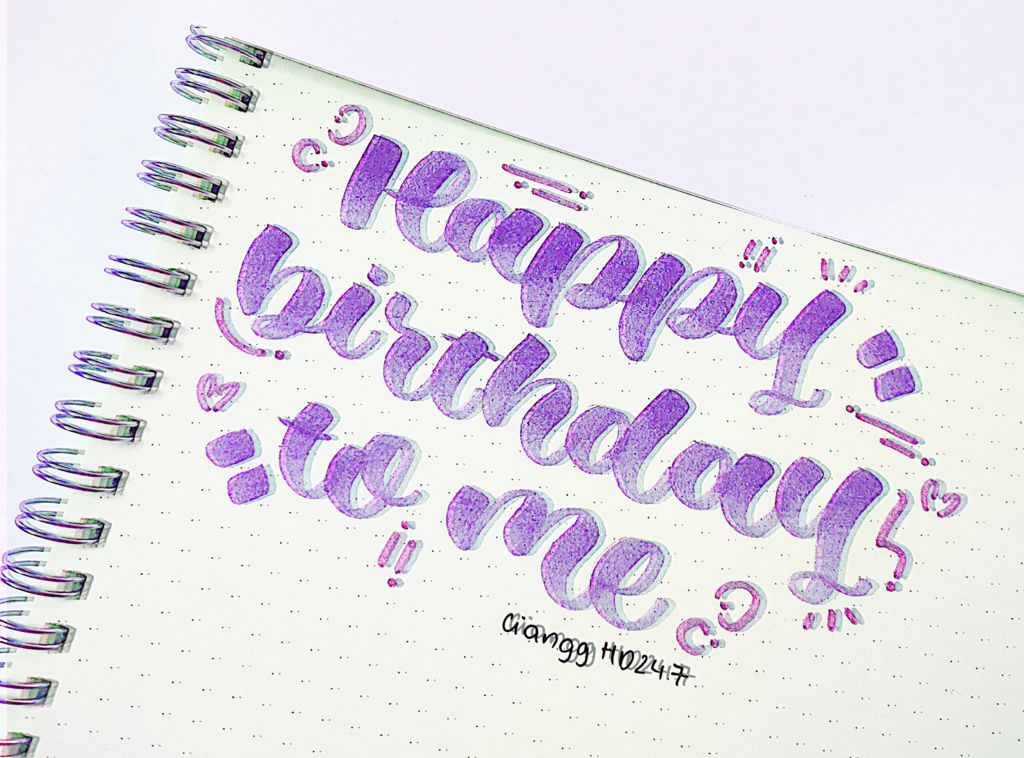 Happy
birthday
to me
Giangg HD247